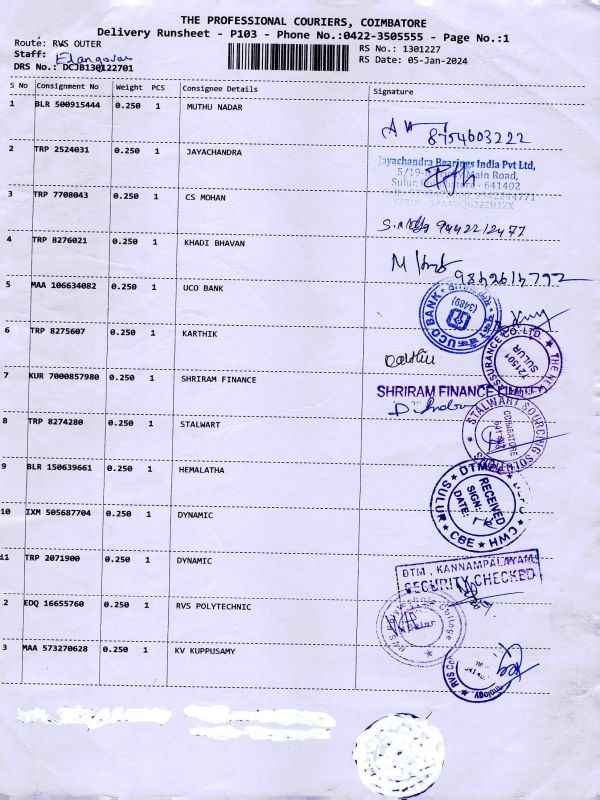 THE PROFESSIONAL COURIERS, COIMBATORE
Delivery Runsheet - P103 - Phone No.:0422-3505555 - Page No.:1
Route: RWS OUTER
RS No.: 1301227
Staff: Elangovan
RS Date: 05-Jan-2024
DRS No.: DCJB130122701
S No Consignment No Weight PCS Consignee Details Signature
1 BLR 500915444 0.250 1 MUTHU NADAR
8754603222
2 TRP 2524031 0.250 1 JAYACHANDRA
Jayachandra Bearings India Pvt Ltd,
Main Road,
Sulur, - 641402
3 TRP 7708043 0.250 1 CS MOHAN
9442212477
4 TRP 8276021 0.250 1 KHADI BHAVAN
9842614792
5 MAA 106634082 0.250 1 UCO BANK
UCO BANK
6 TRP 8275607 0.250 1 KARTHIK
Karthik
ASSURANCE CO. LTD. ★ THE NEW
721501
SULUR
7 KUR 7000857980 0.250 1 SHRIRAM FINANCE
SHRIRAM FINANCE LIMITED
8 TRP 8274280 0.250 1 STALWART
STALWART SOURCING SOLUTIONS
COIMBATORE
9 BLR 150639661 0.250 1 HEMALATHA
SULUR ★ DTM
RECEIVED
SIGN:
DATE:
CBE ★ HMC
10 IXM 505687704 0.250 1 DYNAMIC
11 TRP 2071900 0.250 1 DYNAMIC
DTM, KANNAMPALAYAM
SECURITY CHECKED
2 EDQ 16655760 0.250 1 RVS POLYTECHNIC
RVS Polytechnic College
3 MAA 573270628 0.250 1 KV KUPPUSAMY
RVS